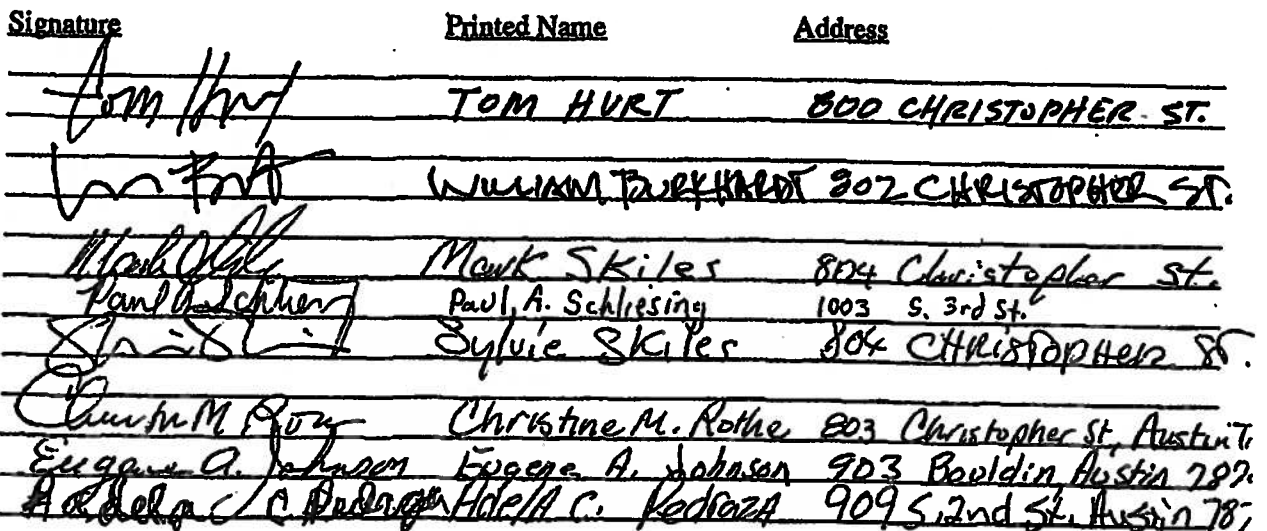 Signature Printed Name Address
Tom Hurt TOM HURT 800 CHRISTOPHER ST.
WILLIAM BURKHARDT 802 CHRISTOPHER ST.
Mark Skiles 804 Christopher St.
Paul A. Schliesing Paul, A. Schliesing 1003 S. 3rd St.
Sylvie Skiles 804 CHRISTOPHER ST.
Christine M. Rothe 803 Christopher St, Austin T
Eugene A. Johnson Eugene A. Johnson 903 Bouldin, Austin 787
Adela C. Pedraza Adela C. Pedraza 909 S. 2nd St. Austin 787